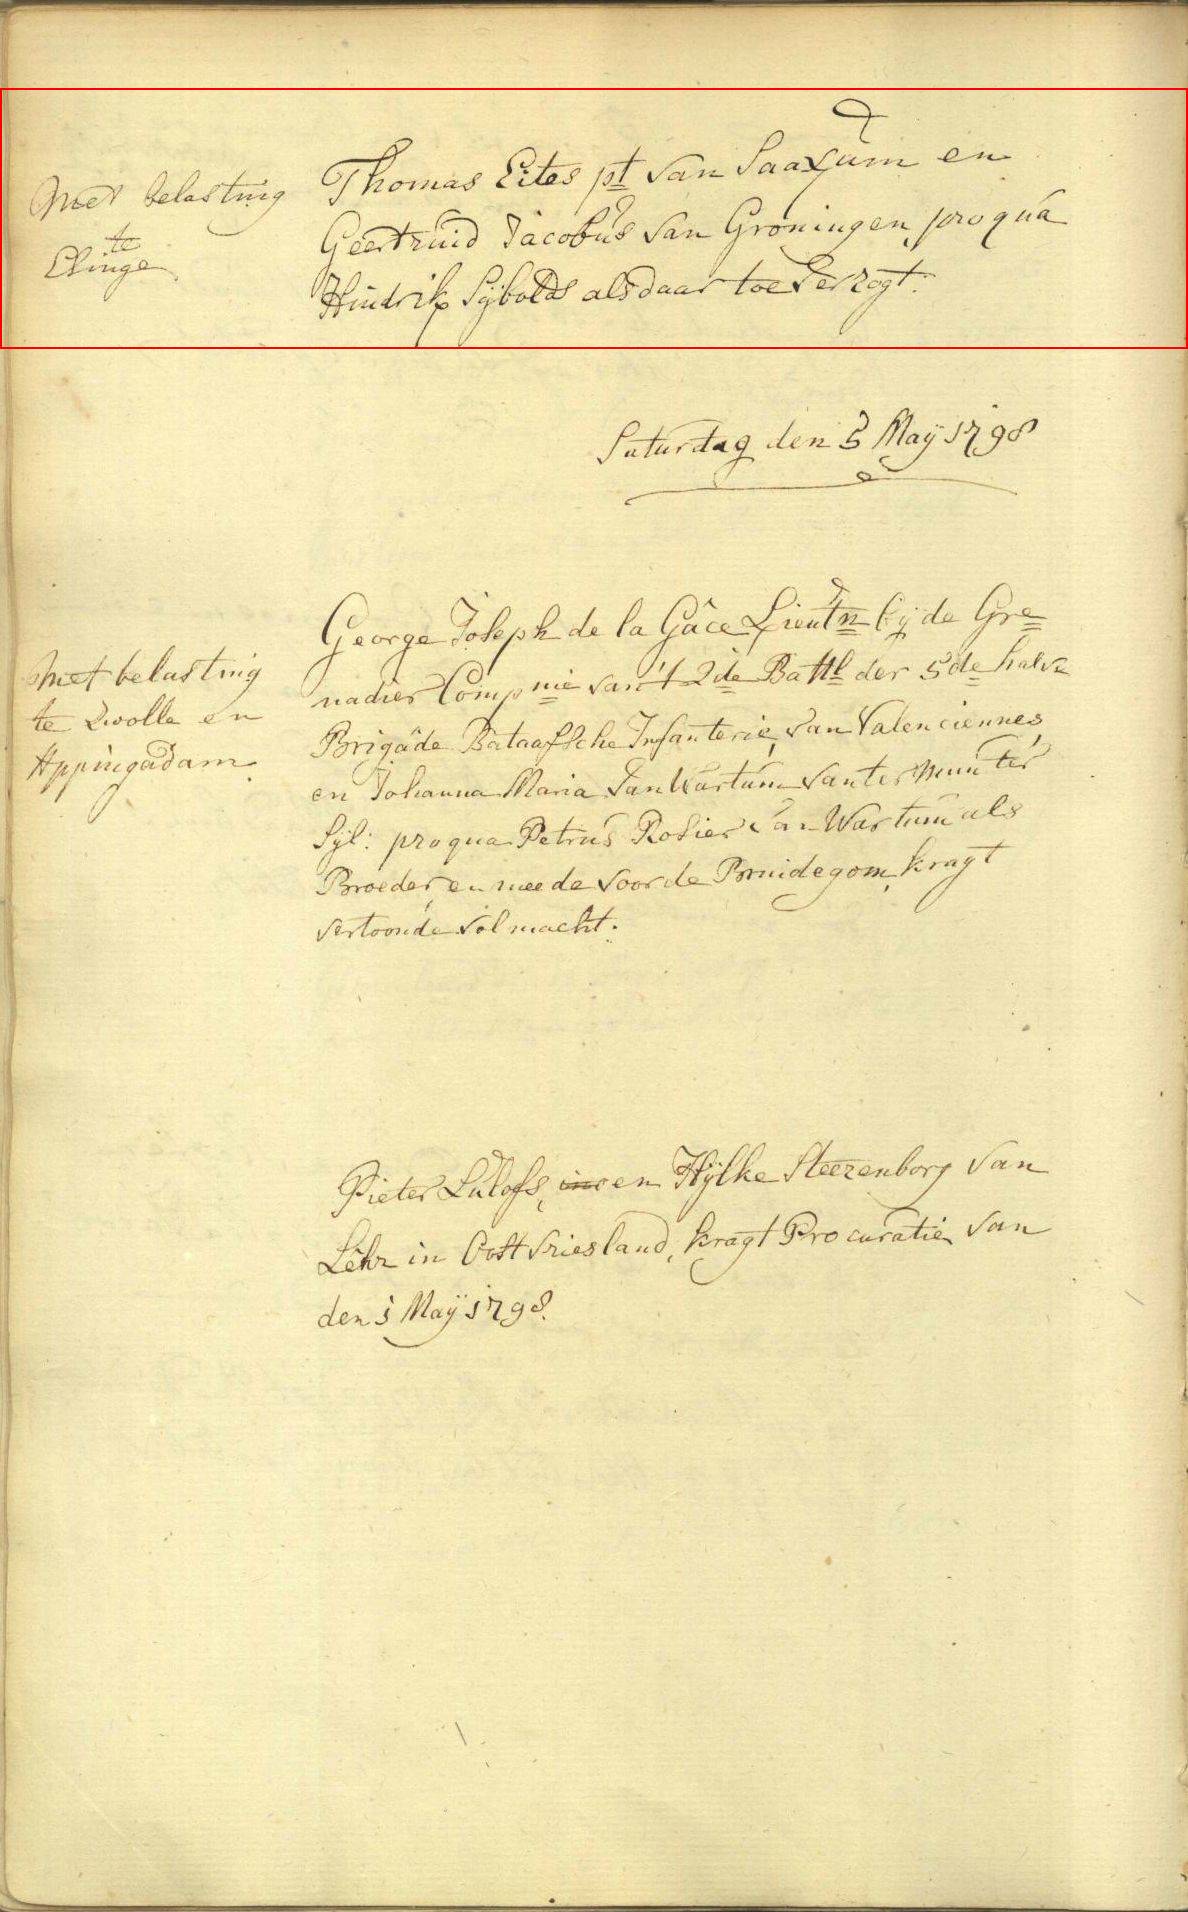 Met belasting
te
Esinge
Thomas Eites pt van Saaxum en
Geertruid Jacobus van Groningen, pro qua
Hindrik Sijbolds als daar toe verzogt.
Saturdag den 5 Maÿ 1798
Met belasting
te Zwolle en
Appingadam.
George Joseph de la Gâce Lieutn bij de Gre=
nadier Compnie van 't 2de Battl der 5de halve
Brigade Bataafsche Infanterie, van Valenciennes,
en Johanna Maria van Wartum van ter Munter
Sijl: pro qua Petrus Rosier van Wartum als
Broeder, en meede voor de Bruidegom, kragt
vertoonde volmacht.
Pieter Lulofs, en Hÿlke Steezenborg van
Lehr in Oostvriesland, kragt Procuratie van
den 1 Maÿ 1798.